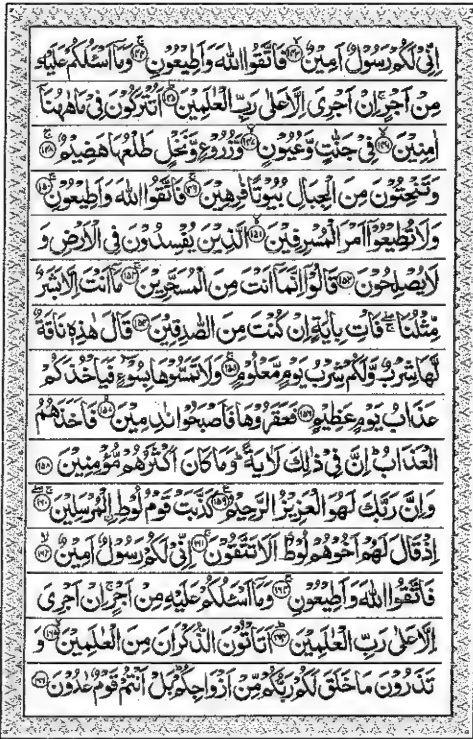 اِنِّىْ لَكُمْ رَسُوْلٌ اَمِيْنٌ ﴿۱۴۳﴾ فَاتَّقُوا اللّٰهَ وَاَطِيْعُوْنِ ﴿۱۴۴﴾ وَمَاۤ اَسْـَٔلُكُمْ عَلَيْهِ
مِنْ اَجْرٍ اِنْ اَجْرِىَ اِلَّا عَلٰى رَبِّ الْعٰلَمِيْنَ ﴿۱۴۵﴾ اَتُتْرَكُوْنَ فِىْ مَا هٰهُنَاۤ
اٰمِنِيْنَ ﴿۱۴۶﴾ فِىْ جَنّٰتٍ وَّعُيُوْنٍ ﴿۱۴۷﴾ وَّزُرُوْعٍ وَّنَخْلٍ طَلْعُهَا هَضِيْمٌ ﴿۱۴۸﴾
وَتَنْحِتُوْنَ مِنَ الْجِبَالِ بُيُوْتًا فٰرِهِيْنَ ﴿۱۴۹﴾ فَاتَّقُوا اللّٰهَ وَاَطِيْعُوْنِ ﴿۱۵۰﴾
وَلَا تُطِيْعُوْۤا اَمْرَ الْمُسْرِفِيْنَ ﴿۱۵۱﴾ الَّذِيْنَ يُفْسِدُوْنَ فِى الْاَرْضِ وَ
لَا يُصْلِحُوْنَ ﴿۱۵۲﴾ قَالُوْۤا اِنَّمَاۤ اَنْتَ مِنَ الْمُسَحَّرِيْنَ ﴿۱۵۳﴾ مَاۤ اَنْتَ اِلَّا بَشَرٌ
مِّثْلُنَا فَاْتِ بِاٰيَةٍ اِنْ كُنْتَ مِنَ الصّٰدِقِيْنَ ﴿۱۵۴﴾ قَالَ هٰذِهٖ نَاقَةٌ
لَّهَا شِرْبٌ وَّلَكُمْ شِرْبُ يَوْمٍ مَّعْلُوْمٍ ﴿۱۵۵﴾ وَلَا تَمَسُّوْهَا بِسُوْٓءٍ فَيَاْخُذَكُمْ
عَذَابُ يَوْمٍ عَظِيْمٍ ﴿۱۵۶﴾ فَعَقَرُوْهَا فَاَصْبَحُوْا نٰدِمِيْنَ ﴿۱۵۷﴾ فَاَخَذَهُمُ
الْعَذَابُ اِنَّ فِىْ ذٰلِكَ لَاٰيَةً وَمَا كَانَ اَكْثَرُهُمْ مُّؤْمِنِيْنَ ﴿۱۵۸﴾
وَاِنَّ رَبَّكَ لَهُوَ الْعَزِيْزُ الرَّحِيْمُ ﴿۱۵۹﴾ كَذَّبَتْ قَوْمُ لُوْطِ ۨالْمُرْسَلِيْنَ ﴿۱۶۰﴾
اِذْ قَالَ لَهُمْ اَخُوْهُمْ لُوْطٌ اَلَا تَتَّقُوْنَ ﴿۱۶۱﴾ اِنِّىْ لَكُمْ رَسُوْلٌ اَمِيْنٌ ﴿۱۶۲﴾
فَاتَّقُوا اللّٰهَ وَاَطِيْعُوْنِ ﴿۱۶۳﴾ وَمَاۤ اَسْـَٔلُكُمْ عَلَيْهِ مِنْ اَجْرٍ اِنْ اَجْرِىَ
اِلَّا عَلٰى رَبِّ الْعٰلَمِيْنَ ﴿۱۶۴﴾ اَتَاْتُوْنَ الذُّكْرَانَ مِنَ الْعٰلَمِيْنَ ﴿۱۶۵﴾ وَ
تَذَرُوْنَ مَا خَلَقَ لَكُمْ رَبُّكُمْ مِّنْ اَزْوَاجِكُمْ بَلْ اَنْتُمْ قَوْمٌ عٰدُوْنَ ﴿۱۶۶﴾